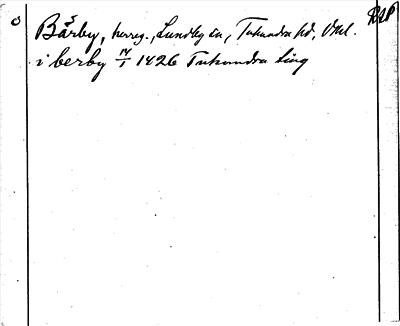 Bärby, herrg., Lundby sn, Tuhundra hd, Vml.
i berby 14/1 1426 Tuhundra ting